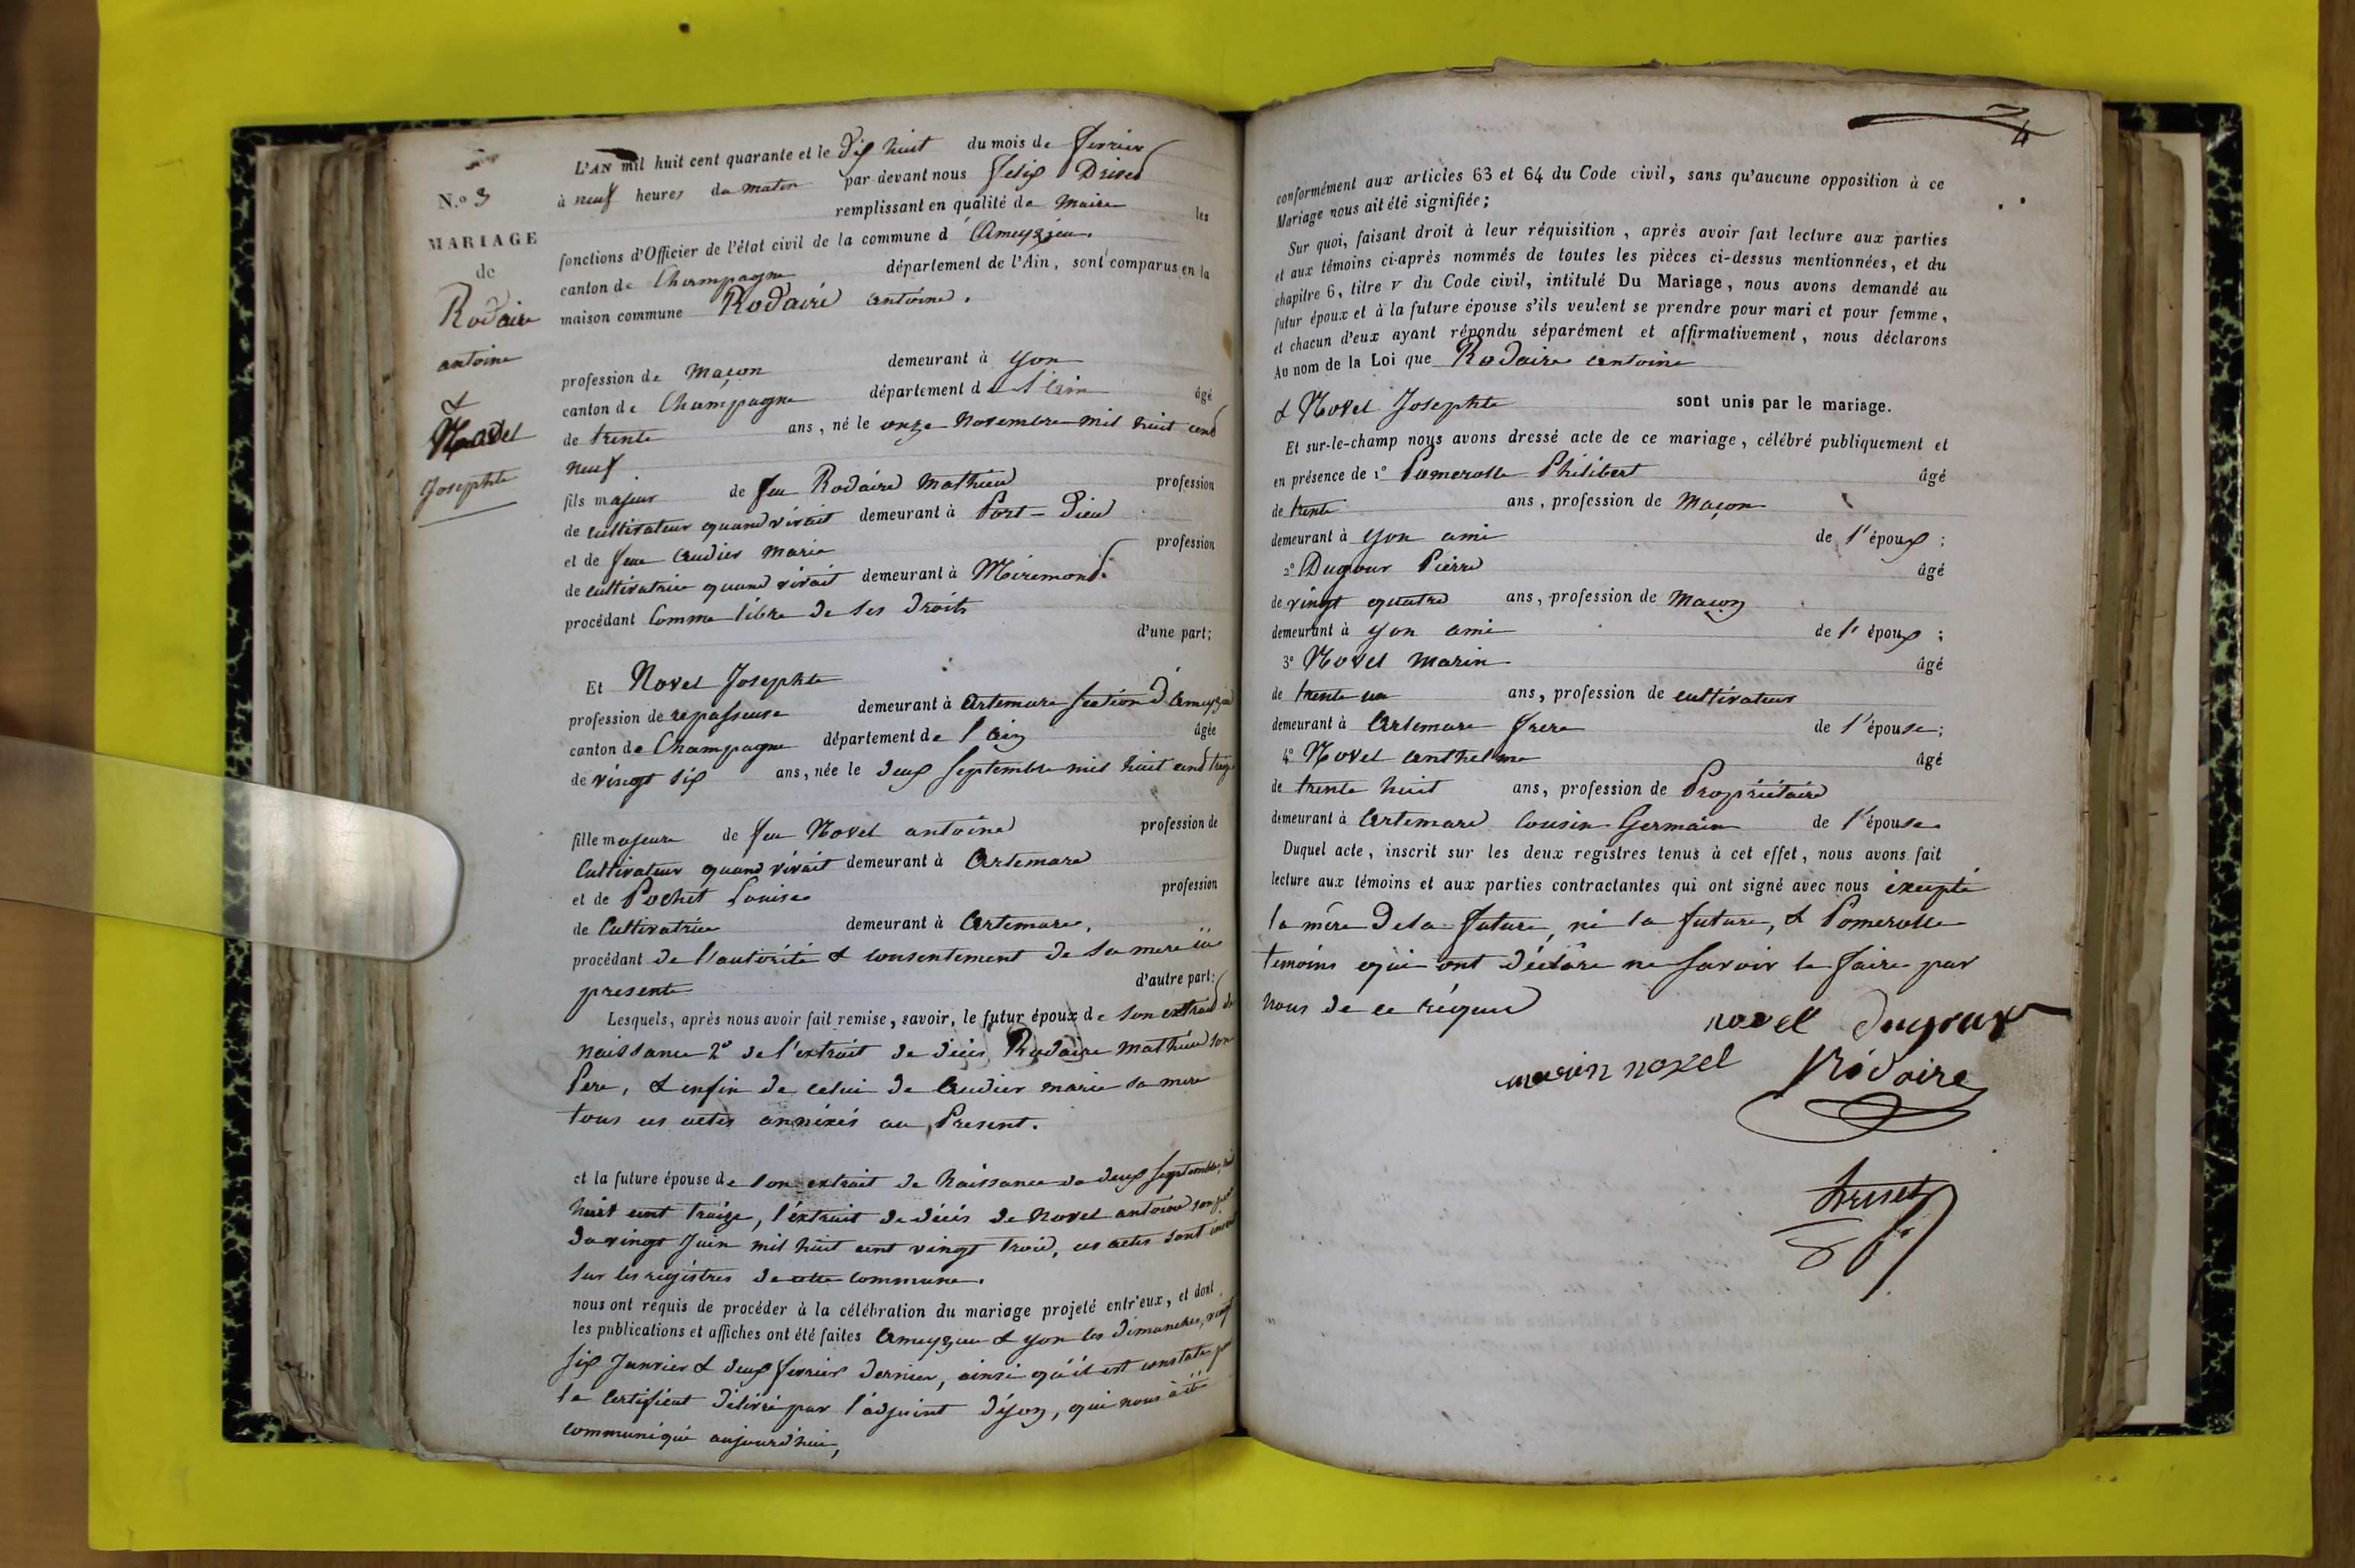 N.o 3
MARIAGE
de
Rodaire
antoine
&
Novel
Josephte
L'AN mil huit cent quarante et le dix huit du mois de fevrier
à neuf heures du matin par-devant nous felix Driset
remplissant en qualité de Maire les
fonctions d'Officier de l'état civil de la commune d'Ameyzieu.
canton de Champagne département de l'Ain, sont comparus en la
maison commune Rodaire antoine.
profession de Maçon demeurant à yon
canton de Champagne département de l'ain âgé
de trente ans, né le onze Novembre mil huit cent
neuf
fils majeur de feu Rodaire Mathieu profession
de cultivateur quand vivait demeurant à Port-Dieu
et de feue Audier Marie profession
de cultivatrice quand vivait demeurant à Miremond.
procédant Comme libre de ses droits
d'une part;
Et Novel Josephte
profession de repasseuse demeurant à Artemare section d'ameyzieu
canton de Champagne département de l'ain âgée
de vingt six ans, née le deux septembre mil huit cent treize
fille majeure de feu Novel antoine profession de
Cultivateur quand vivait demeurant à Artemare
et de Pochet Louise profession
de Cultivatrice demeurant à Artemare,
procédant de l'autorité & consentement de sa mere ici
presente d'autre part;
Lesquels, après nous avoir fait remise, savoir, le futur époux de son extrait de
naissance 2° de l'extrait de décès Rodaire Mathieu son
Pere, & enfin de celui de Audier marie sa mere
tous ces actes annéxés au Present.
et la future épouse de son extrait de Naissance du deux septembre mil
huit cent treize, l'éxtrait de décès de Novel antoine son père
du vingt Juin mil huit cent vingt trois, ces actes sont inscrits
sur les registres de cette commune.
nous ont requis de procéder à la célébration du mariage projeté entr'eux, et dont
les publications et affiches ont été faites Ameyzieu & yon les dimanches, vingt
six Janvier & deux fevrier dernier, ainsi qu'il est constaté par
le Certificat délivré par l'adjoint d'yon, qui nous a été
communiqué aujourd'hui,
4
conformément aux articles 63 et 64 du Code civil, sans qu'aucune opposition à ce
Mariage nous ait été signifiée;
Sur quoi, faisant droit à leur réquisition, après avoir fait lecture aux parties
et aux témoins ci-après nommés de toutes les pièces ci-dessus mentionnées, et du
chapitre 6, titre v du Code civil, intitulé Du Mariage, nous avons demandé au
futur époux et à la future épouse s'ils veulent se prendre pour mari et pour femme,
et chacun d'eux ayant répondu séparément et affirmativement, nous déclarons
Au nom de la Loi que Rodaire antoine
& Novel Josephte sont unis par le mariage.
Et sur-le-champ nous avons dressé acte de ce mariage, célébré publiquement et
en présence de 1° Pomerolle Philibert âgé
de trente ans, profession de Maçon
demeurant à yon ami de l'époux;
2° Dugour Pierre âgé
de vingt quatre ans, profession de Maçon
demeurant à yon ami de l'époux;
3° Novel Marin âgé
de trente un ans, profession de cultivateur
demeurant à Artemare frere de l'épouse;
4° Novel anthelme âgé
de trente huit ans, profession de Propriétaire
demeurant à Artemare Cousin Germain de l'épouse
Duquel acte, inscrit sur les deux registres tenus à cet effet, nous avons fait
lecture aux témoins et aux parties contractantes qui ont signé avec nous éxcepté
la mère de la future, ni la future, & Pomerolle
temoins qui ont déclaré ne savoir le faire par
nous de ce réquis
novel dugour
marin novel Rodaire
Driset